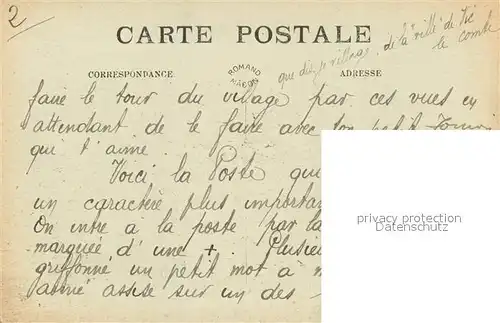 2
CARTE POSTALE
que dis-je village, de la "ville" de Vic
le comte
CORRESPONDANCE
ROMAND
MACON
ADRESSE
faire le tour du village par ces vues en
attendant de le faire avec ton petit
qui t'aime
Voici la Poste qui
un caractère plus important
On intre à la poste par la
marquée d'une +. Plusieu
griffonné un petit mot à m
assise sur un des
privacy protection
Datenschutz